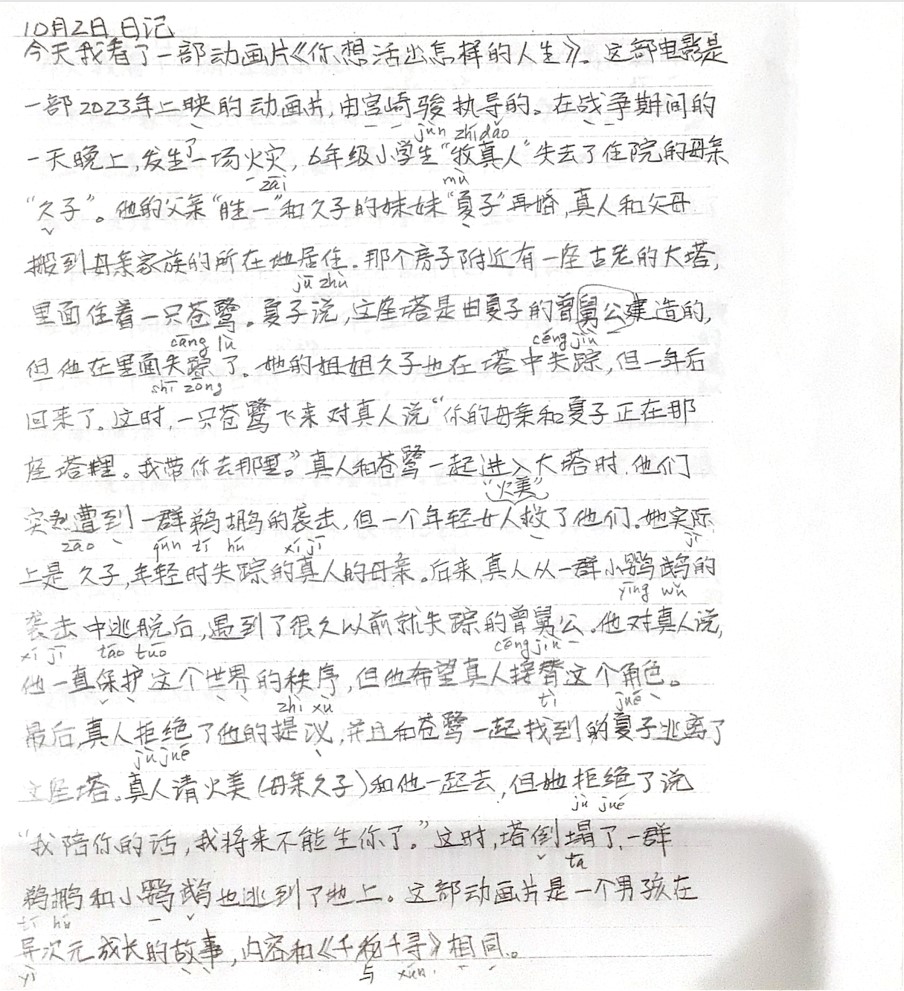 10月2日 日记
今天我看了一部动画片《你想活出怎样的人生》。这部电影是
一部2023年上映的动画片,由宫崎骏执导的。在战争期间的
jùn zhí dǎo
一天晚上,发生了一场火灾,6年级小学生"牧真人"失去了住院的母亲
zāi mù
"久子"。他的父亲"胜一"和久子的妹妹"夏子"再婚,真人和父母
搬到母亲家族的所在地居住。那个房子附近有一座古老的大塔,
jū zhù
里面住着一只苍鹭。夏子说,这座塔是由夏子的曾舅公建造的,
cāng lù céng jiù
但他在里面失踪了。她的姐姐久子也在塔中失踪,但一年后
shī zōng
回来了。这时,一只苍鹭下来对真人说"你的母亲和夏子正在那
座塔里。我带你去那里。"真人和苍鹭一起进入大塔时,他们
"火美"
突然遭到一群鹈鹕的袭击,但一个年轻女人救了他们。她实际
zāo qún tí hú xí jī jì
上是久子,年轻时失踪的真人的母亲。后来真人从一群小鹦鹉的
yīng wǔ
袭击中逃脱后,遇到了很久以前就失踪的曾舅公。他对真人说,
xí jī táo tuō céng jiù
他一直保护这个世界的秩序,但他希望真人接替这个角色。
zhì xù tì jué
最后,真人拒绝了他的提议,并且和苍鹭一起找到的夏子逃离了
jù jué
这座塔。真人请火美(母亲久子)和他一起去,但她拒绝了说
jù jué
"我陪你的话,我将来不能生你了。"这时,塔倒塌了,一群
tā
鹈鹕和小鹦鹉也逃到了地上。这部动画片是一个男孩在
tí hú
异次元成长的故事,内容和《千与千寻》相同。
yì 与 xún